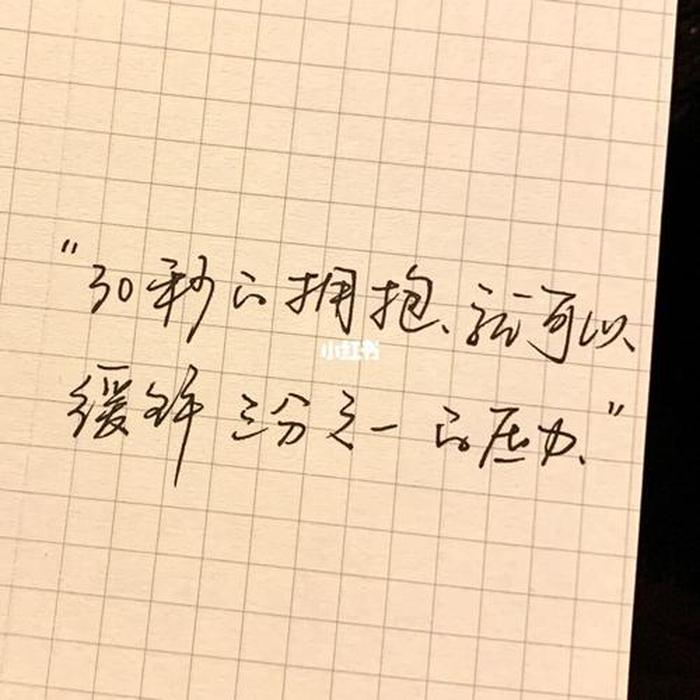 "30秒的拥抱、就可以
小红书
缓解三分之一的压力、"